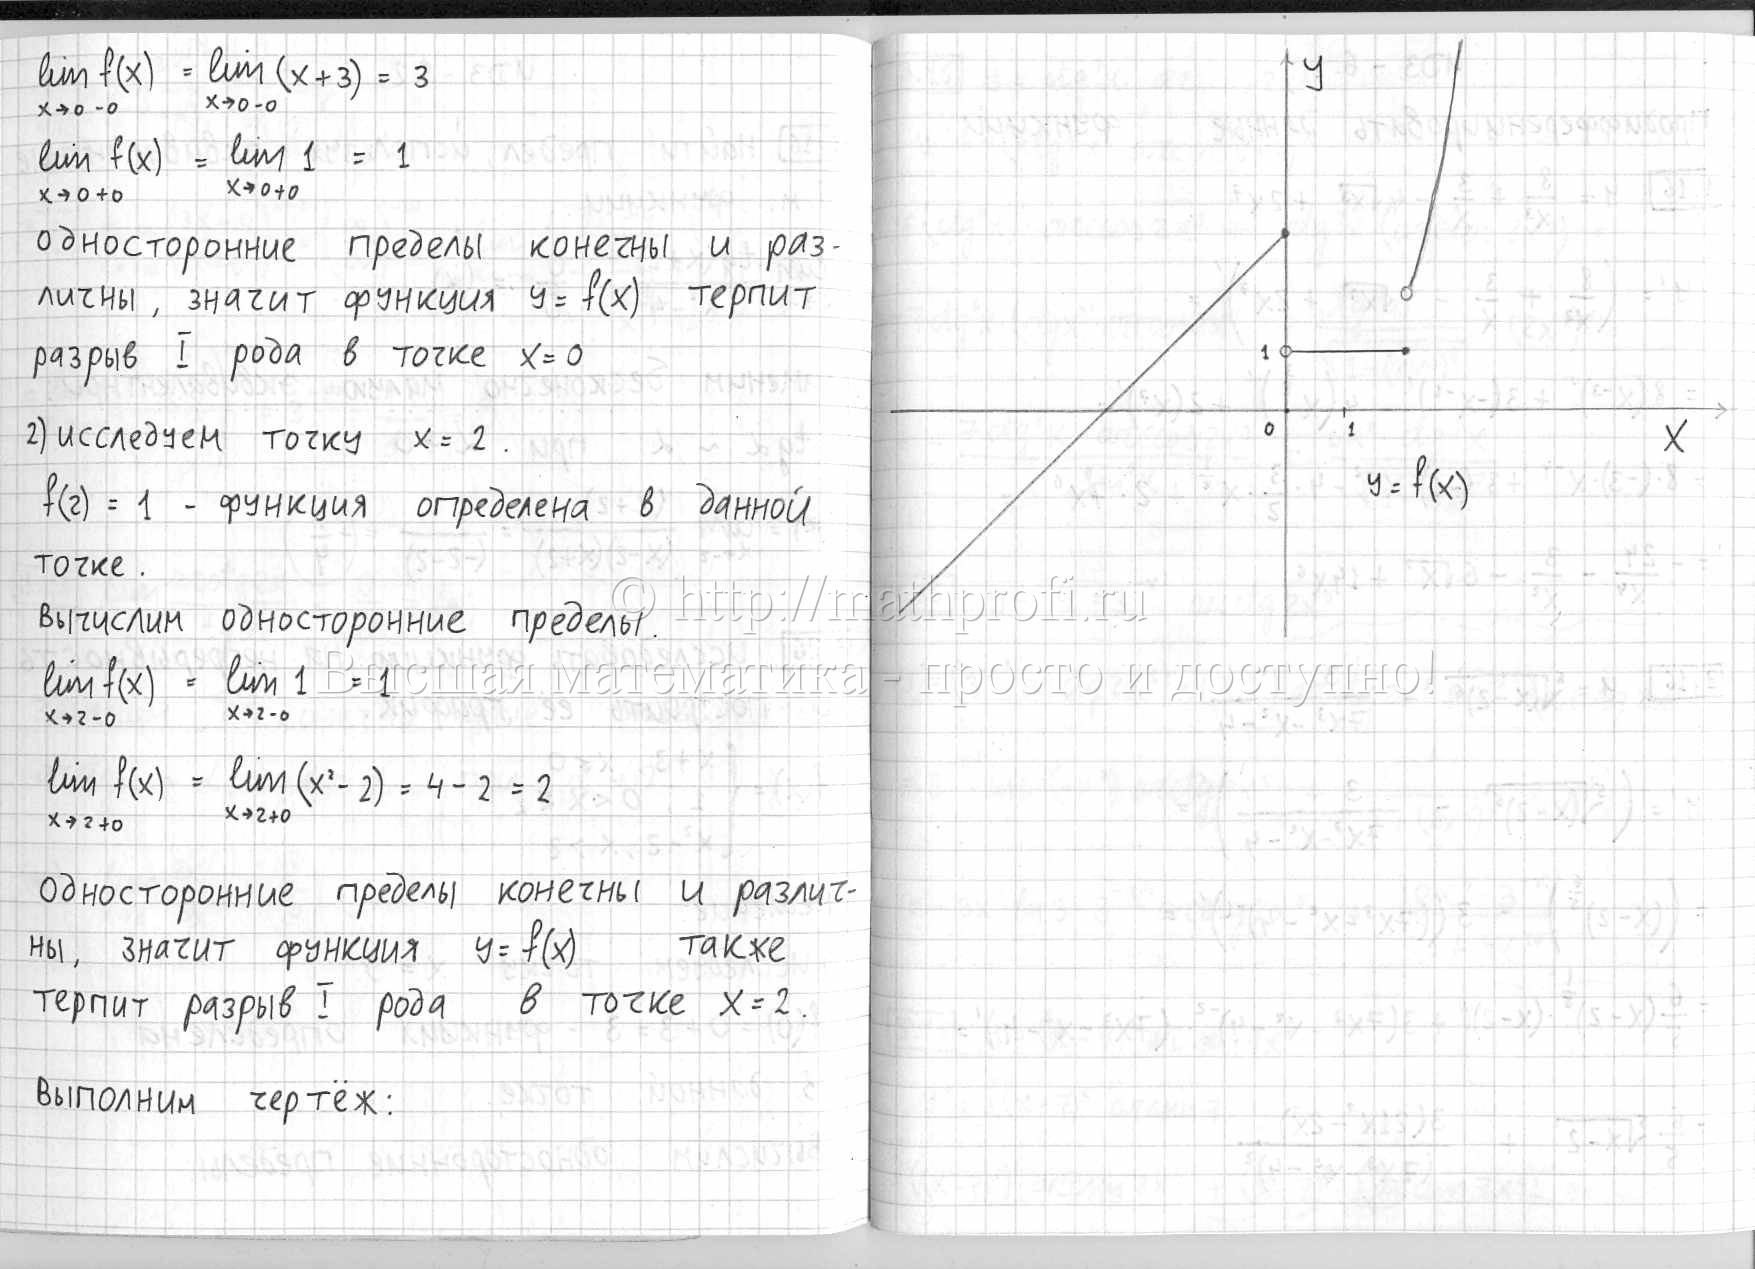 lim f(x) = lim (x+3) = 3
x→0-0 x→0-0
lim f(x) = lim 1 = 1
x→0+0 x→0+0
Односторонние пределы конечны и раз-
личны, значит функция y=f(x) терпит
разрыв I рода в точке x=0
2) исследуем точку x=2.
f(2) = 1 - функция определена в данной
точке.
Вычислим односторонние пределы.
lim f(x) = lim 1 = 1
x→2-0 x→2-0
lim f(x) = lim (x²-2) = 4-2 = 2
x→2+0 x→2+0
Односторонние пределы конечны и различ-
ны, значит функция y=f(x) также
терпит разрыв I рода в точке x=2.
Выполним чертёж:
y
1
0 1
x
y=f(x)
© http://mathprofi.ru
Высшая математика - просто и доступно!